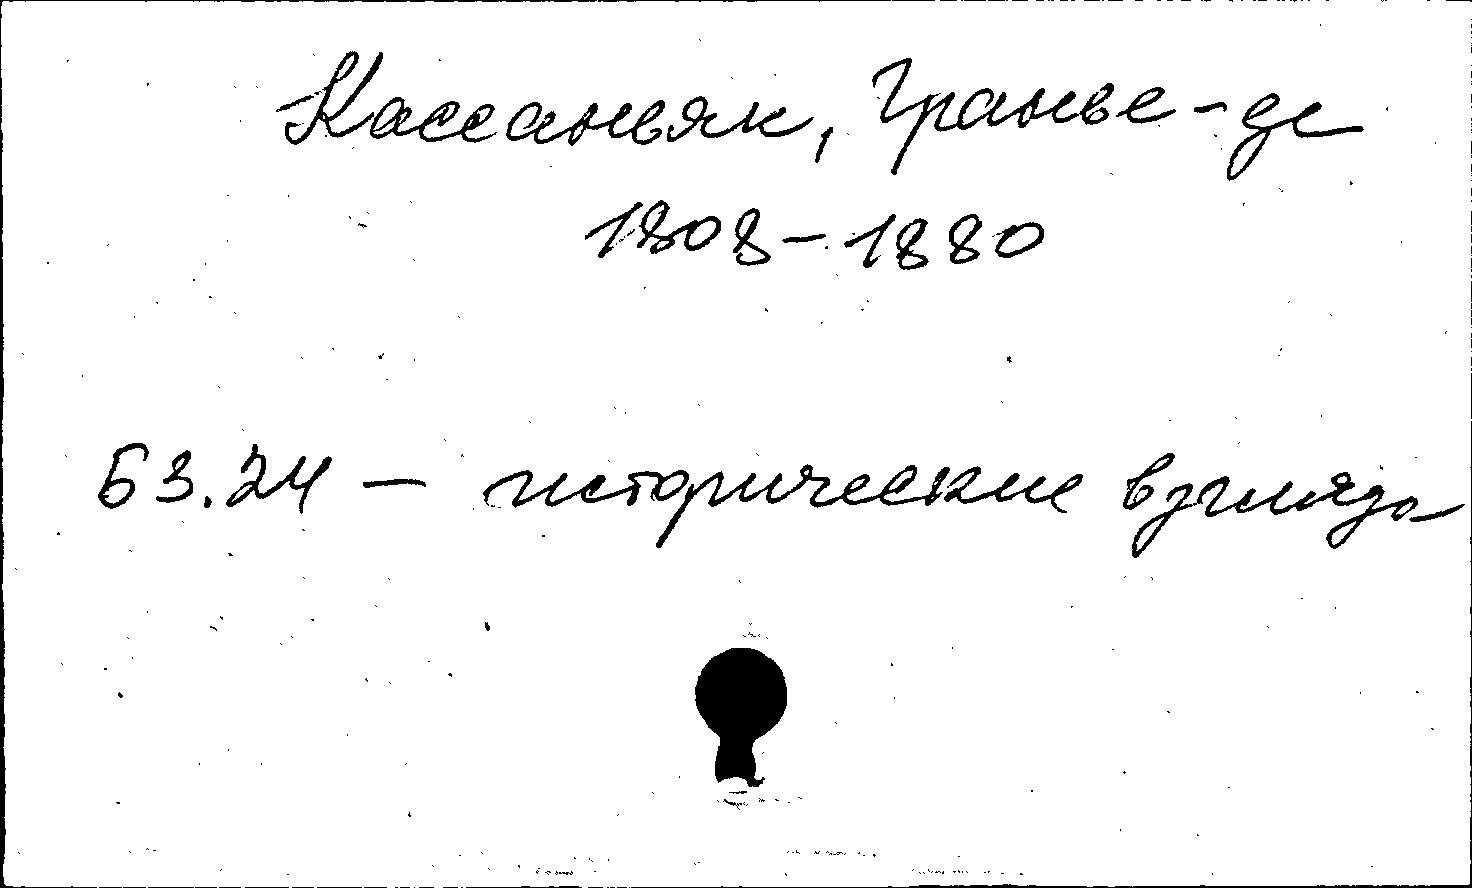 Кассаньяк, Гранье-де
1808-1880
Б3.24 — исторические взгляды